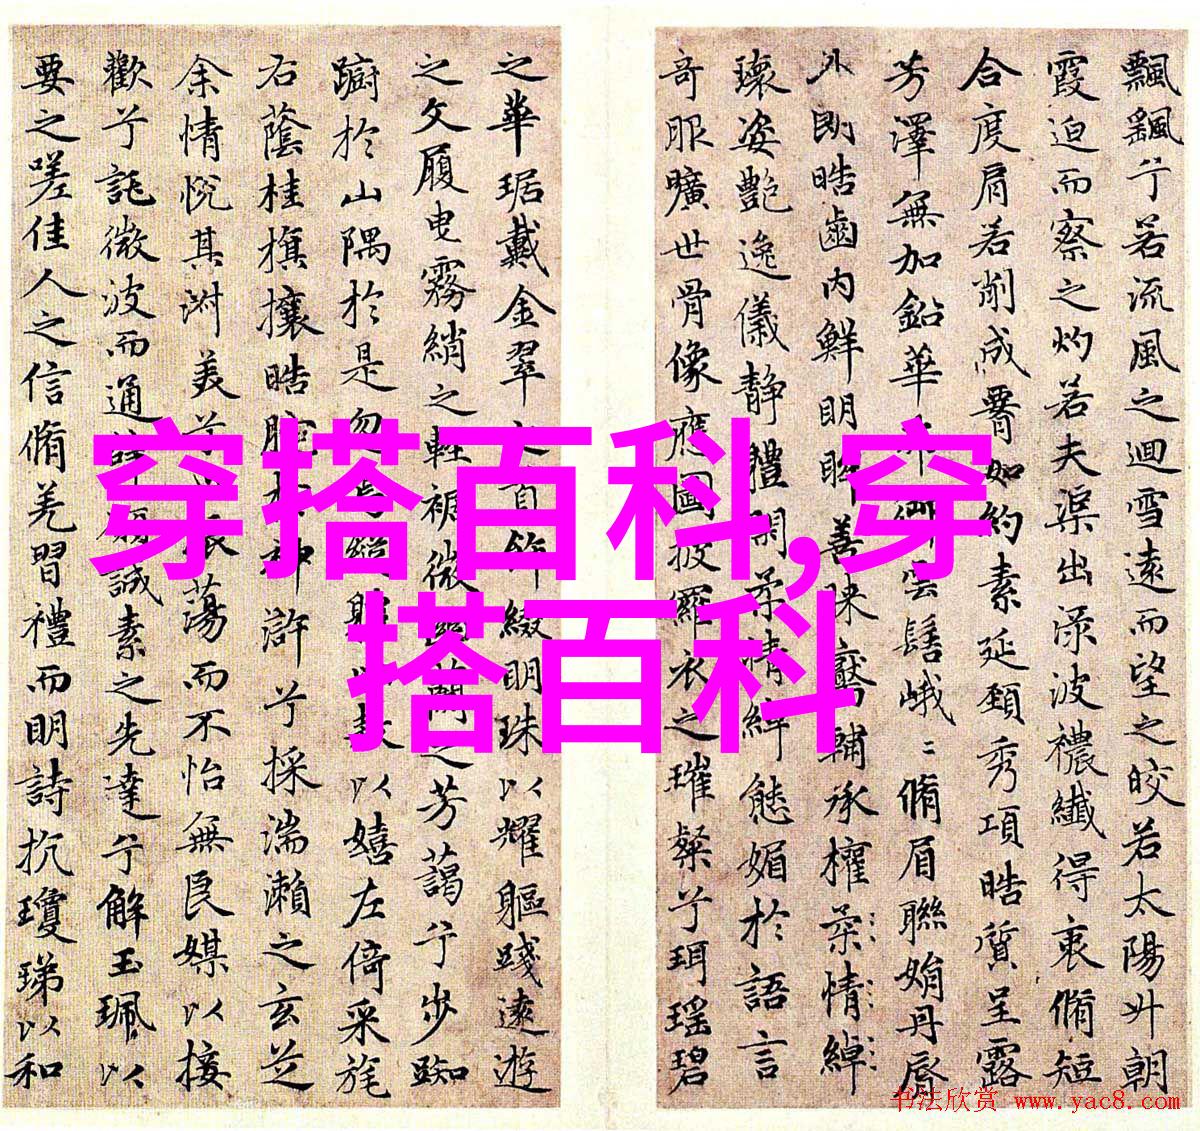 飄飖兮若流風之迴雪遠而望之皎若太陽升朝
霞迫而察之灼若夫渠出淥波禯纖得衷脩短
合度肩若削成腰如約素延頸秀項皓質呈露
芳澤無加鉛華不御雲髻峨〻脩眉聯娟丹脣
外朗皓齒内鮮明眸善睞靨輔承權柔情綽
瓌姿艷逸儀靜體閑柔情綽態媚於語言
奇服曠世骨像應圖披羅衣之璀粲兮珥瑶碧
之華琚戴金翠之首飾綴明珠以耀軀踐遠遊
之文履曳霧綃之輕裾微幽蘭之芳藹兮步踟
蹰於山隅於是忽焉縱體以遨以嬉左倚采旄
右蔭桂旗攘皓腕於神滸兮採湍瀨之玄芝
余情悅其淑美兮心振蕩而不怡無良媒以接
歡兮託微波而通辭願誠素之先達兮解玉珮以
要之嗟佳人之信脩羌習禮而明詩抗瓊珶以和
穿搭百科,穿
搭百科
书法欣赏 www.yac8.com